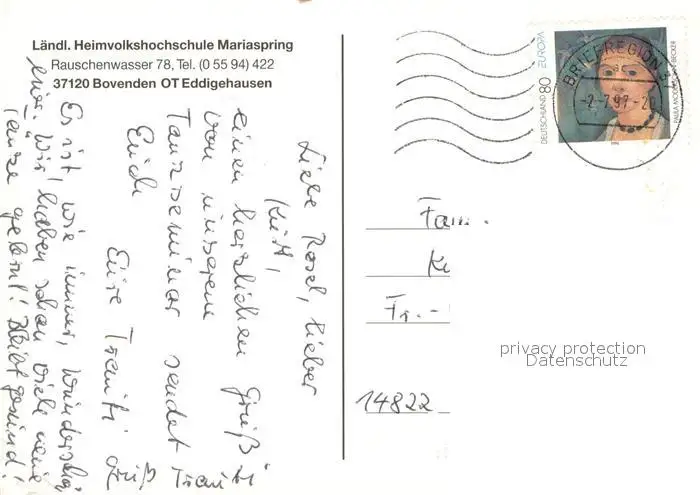 Ländl. Heimvolkshochschule Mariaspring
Rauschenwasser 78, Tel. (0 55 94) 422
37120 Bovenden OT Eddigehausen
Liebe Rosel, lieber
Kurt,
einen herzlichen Gruß
von unserem
Tanzseminar sendet
Euch Traute
Eure Traute
Es ist, wie immer, wunderschön
hier. Wir haben schon viele neue
Tänze gelernt! Bleibt gesund!
Gruß
DEUTSCHLAND 80 EUROPA
PAULA MODERSOHN-BECKER
BRIEFREGION 37
-2.7.97-20
Fam.
Ku
Fr.-
14822
privacy protection
Datenschutz